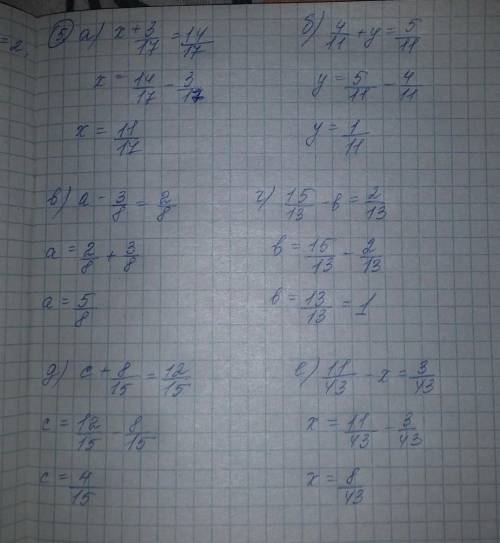 =2,
⑤ а) x + 3/17 = 14/17
x = 14/17 - 3/17
x = 11/17
б) 4/11 + y = 5/11
y = 5/11 - 4/11
y = 1/11
в) a - 3/8 = 2/8
a = 2/8 + 3/8
a = 5/8
г) 15/13 - в = 2/13
в = 15/13 - 2/13
в = 13/13 = 1
д) c + 8/15 = 12/15
c = 12/15 - 8/15
c = 4/15
е) 11/43 - x = 3/43
x = 11/43 - 3/43
x = 8/43